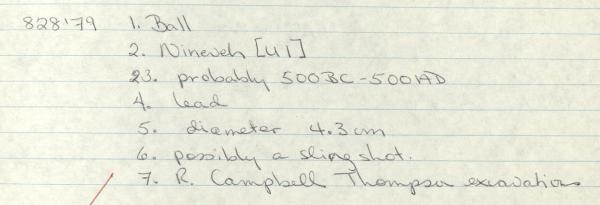 828'79 1. Ball
2. Nineveh [U1]
23. probably 500BC-500AD
4. lead
5. diameter 4.3cm
6. possibly a sling shot.
7. R. Campbell Thompson excavations